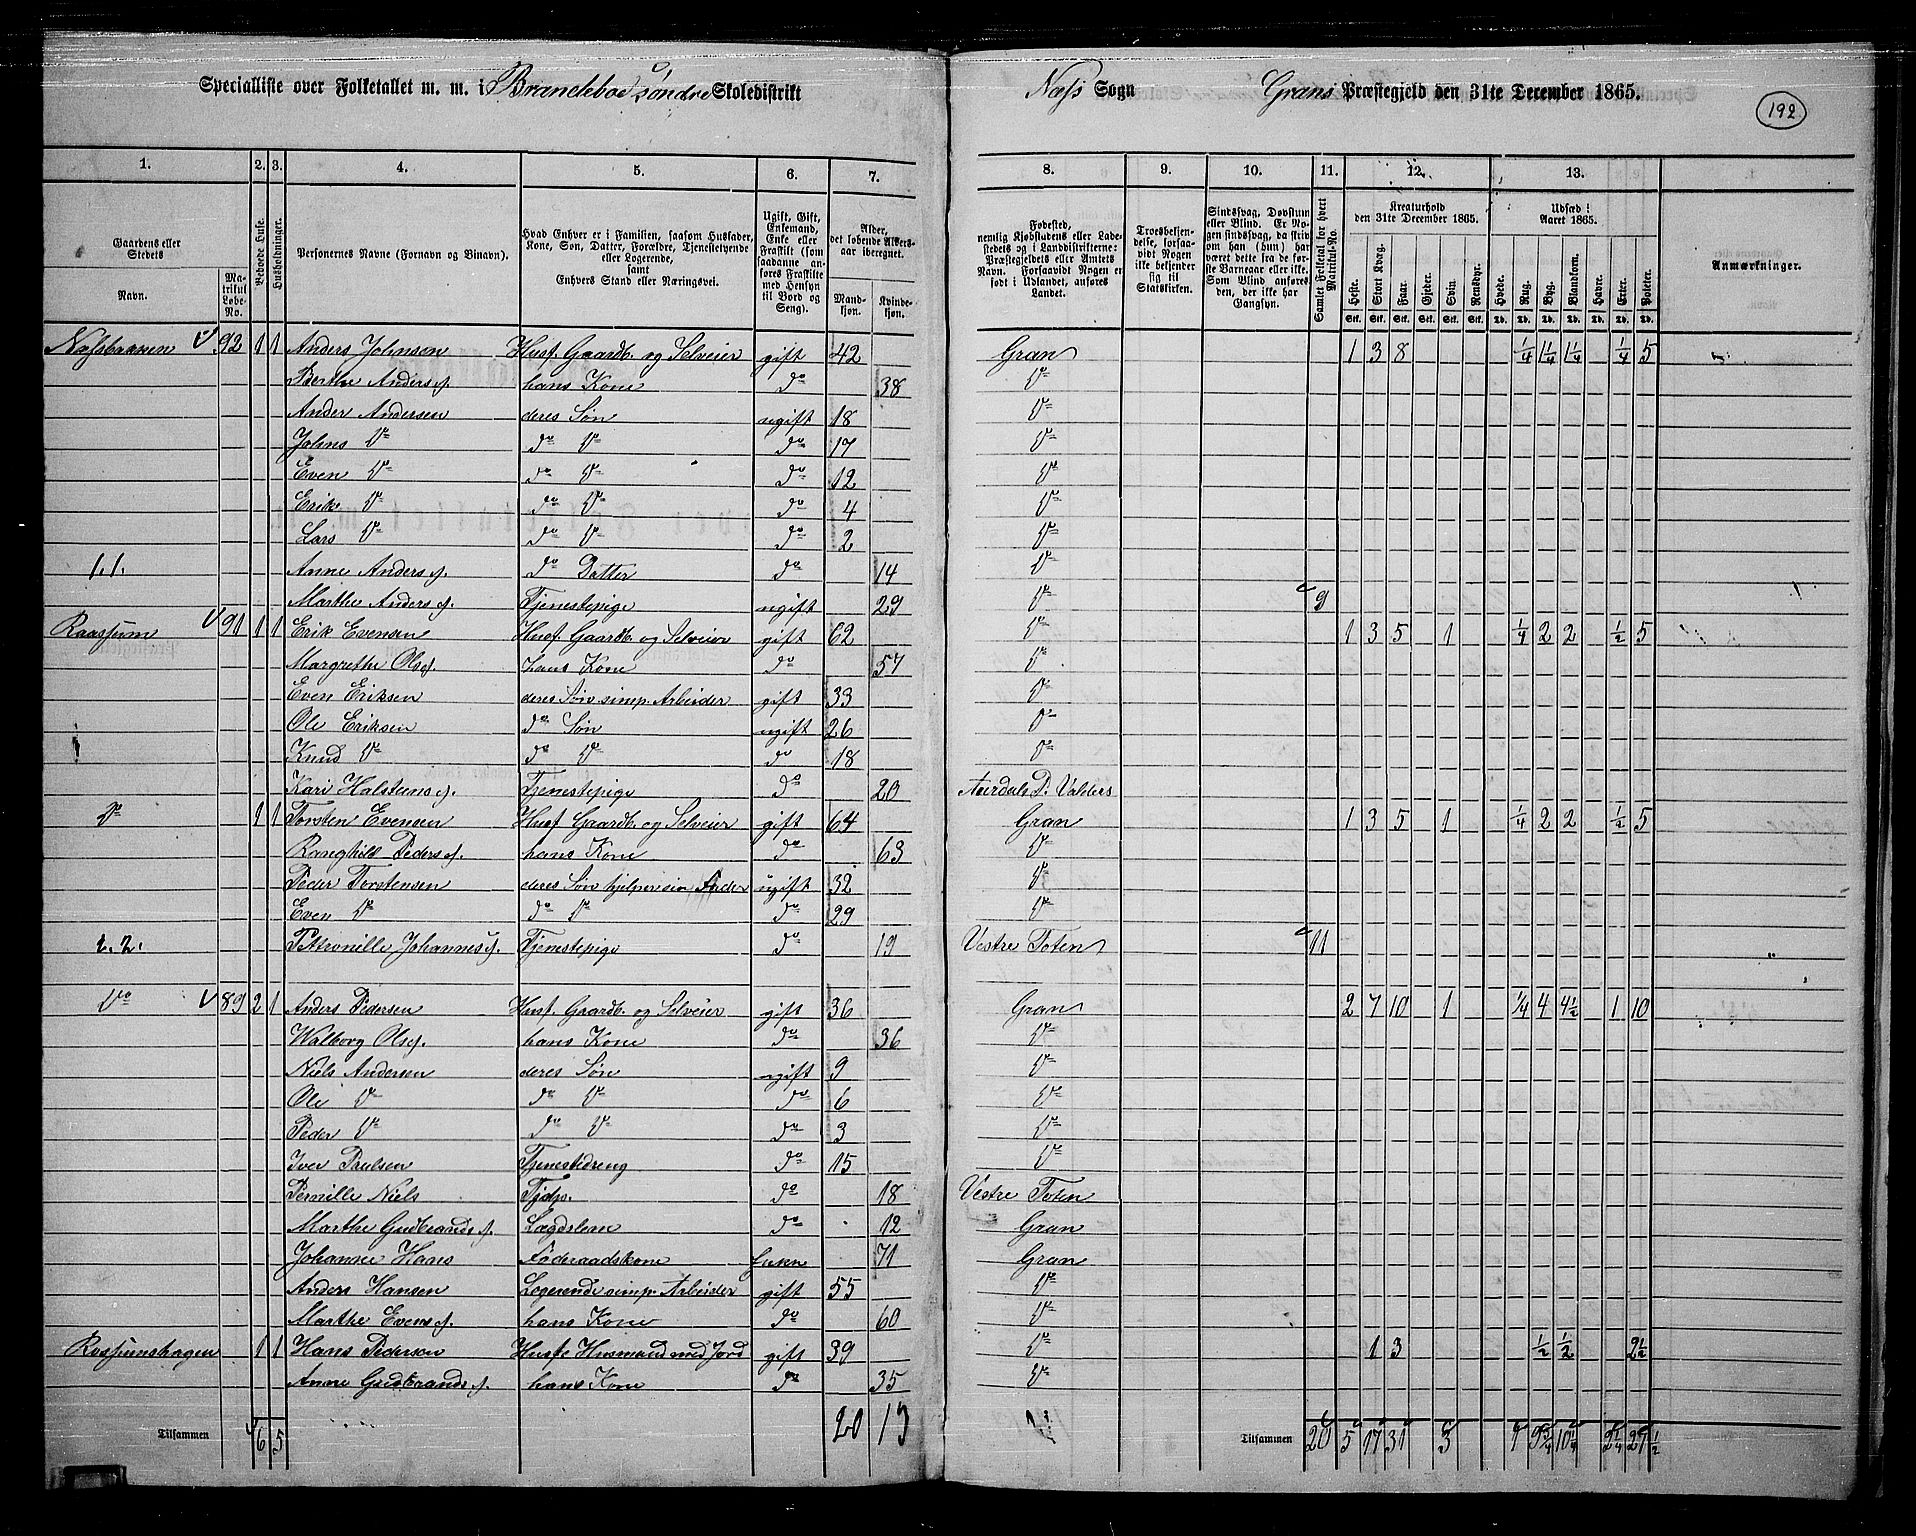 Specialliste over Folketallet m. m. i Brandebo søndre Skoledistrikt Næss Sogn Grans Præstegjeld den 31te December 1865.
192
1. 2. 3. 4. 5. 6. 7. 8. 9. 10. 11. 12. 13.
Gaardens eller Stedets Navn. Matrikul Løbe-No. Beboede Huse. Husholdninger. Personernes Navne (Fornavn og Binavn). Hvad Enhver er i Familien, saasom Husfader, Kone, Søn, Datter, Forældre, Tjenestetyende eller Logerende, samt Enhvers Stand eller Næringsvei. Ugift, Gift, Enkemand, Enke eller Fraskilt (som saadanne anføres Fraskilte med Hensyn til Bord og Seng). Alder, det løbende Aldersaar iberegnet. Mandkjøn. Kvindekjøn.
Fødested, nemlig Kjøbstadens eller Ladestedets og i Landdistrikterne: Præstegjeldets eller Amtets Navn. Forsaavidt Nogen er født i Udlandet, anføres Landet. Troesbekjendelse, forsaavidt Nogen ikke bekjender sig til Statskirken. Sindssvag, Døvstum eller Blind. Er Nogen sindssvag, da skriv om han (hun) har været dette fra de første Barneaar eller ikke. Som Blind anføres den, der ikke har Gangsyn. Samlet Folketal for hvert Matrikul-No. Kreaturhold den 31te December 1865. Heste. Stort Kvæg. Faar. Gjeder. Svin. Rensdyr. Udsæd i Aaret 1865. Hvede. Rug. Byg. Blandkorn. Havre. Erter. Poteter. Anmærkninger.
Stk. Stk. Stk. Stk. Stk. Stk. Td. Td. Td. Td. Td. Td. Td.
Næssbakken 92 1 1 Anders Johnsen Husf. Gaardb. og Selveier gift 42 Gran 1 3 8 1/4 1 1/4 1 1/4 1/4 5
Berthe Andersd. hans Kone do 38 do
Ander Andersen deres Søn ugift 18 do
Johns do do do do 17 do
Even do do do do 12 do
Erik do do do do 4 do
Lars do do do do 2 do
1.1. Anne Andersd. do Datter do 14 do
Marthe Andersd. Tjenestepige ugift 29 do 9
Raassum 91 1 1 Erik Evensen Husf. Gaardb. og Selveier gift 62 do 1 3 5 1 1/4 2 2 1/2 5
Margrethe Olsd. hans Kone do 57 do
Even Eriksen deres Søn simp. Arbeider gift 33 do
Ole Eriksen do Søn ugift 26 do
Knud do do do do 18 do
Kari Halsteinsd. Tjenestepige do 20 Aurdals P. Valders
do 1 1 Torsten Evensen Husf. Gaardb. og Selveier gift 64 Gran 1 3 5 1 1/4 2 2 1/2 5
Ranghild Pedersd. hans Kone do 63 do
Peder Torstensen deres Søn hjelper sin Fader ugift 32 do
Even do do do do 29 do
2.2. Petronille Johannesd. Tjenestepige do 19 Vestre Toten 11
do 89 2 1 Anders Pedersen Husf. Gaardb. og Selveier gift 36 Gran 2 7 10 1 1/4 4 4 1/2 1 10
Walborg Olsd. hans Kone do 36 do
Niels Andersen deres Søn ugift 9 do
Ole do do do do 6 do
Peder do do do do 3 do
Iver Paulsen Tjenestedreng do 15 do
Pernille Niels Tjdp. do 18 Vestre Toten
Marthe Gudbrandsd. Lægdslem do 12 Gran
Johanne Hans Føderaadskone 71 Gran
Anders Hansen Logerende simp. Arbeider gift 55 do
Marthe Evensd. hans Kone do 60 do
Rossumshagen 1 1 Hans Pedersen Husf. Husmand med Jord gift 39 do 1 3 1/2 1/2 2 1/2
Anne Gudbrandsd. hans Kone do 35 do
Tilsammen 6 5 20 13 Tilsammen 20 5 17 31 3 1 9 3/4 10 1/4 2 1/4 27 1/2